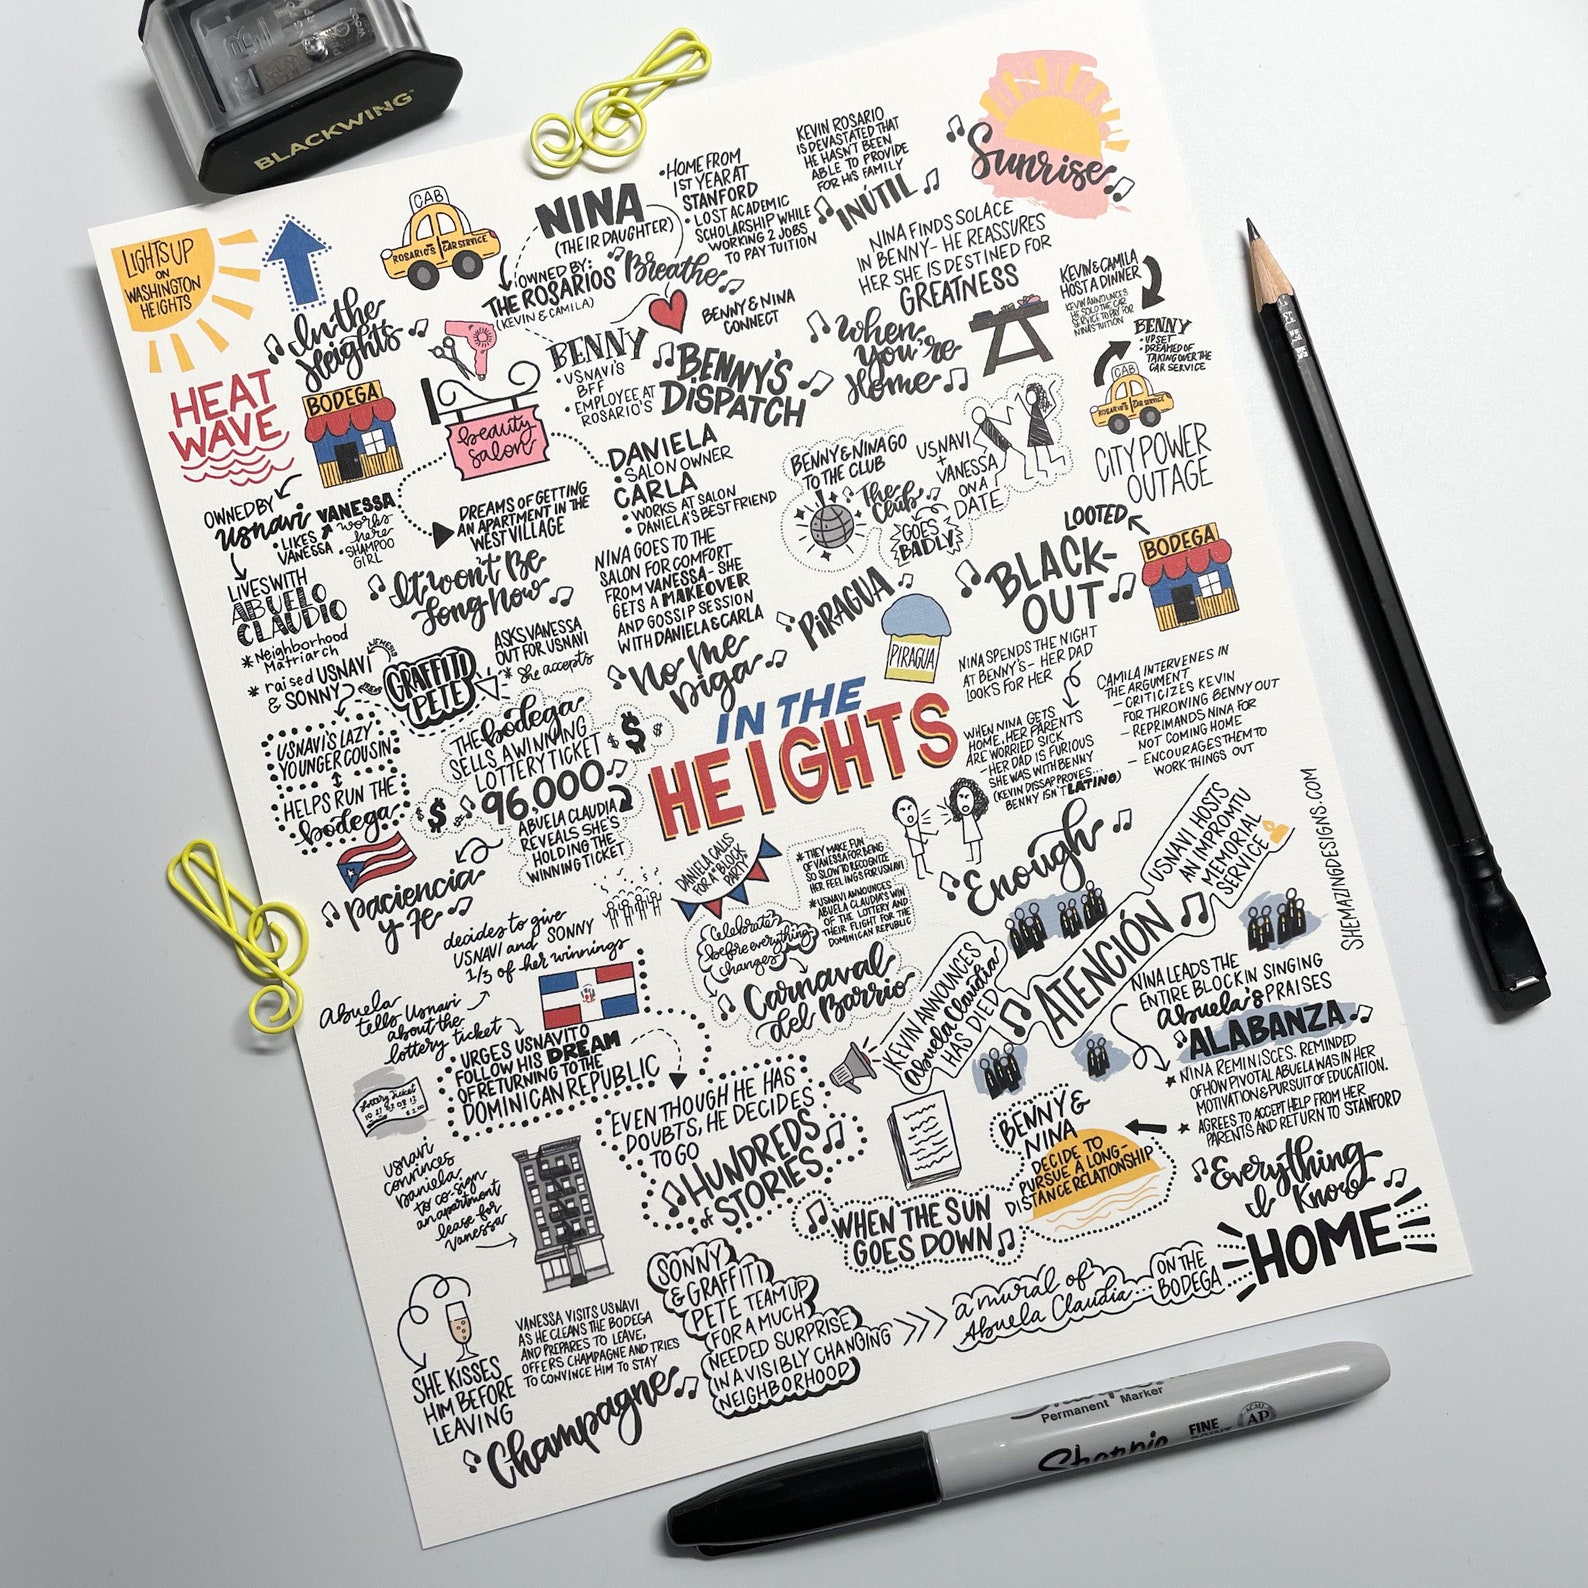 BLACKWING
LIGHTS UP
ON
WASHINGTON
HEIGHTS
CAB
ROSARIO'S CAR SERVICE
In the
Heights
HEAT
WAVE
BODEGA
OWNED BY
usnavi
• LIKES
VANESSA
VANESSA
works
here
• SHAMPOO
GIRL
LIVES WITH
ABUELO
CLAUDIO
* Neighborhood
Matriarch
* raised USNAVI
& SONNY
NEMESIS
GRAFFITI
PETE
ASKS VANESSA
OUT FOR USNAVI
• She accepts
USNAVI'S LAZY
YOUNGER COUSIN
HELPS RUN THE
bodega
NINA
(THEIR DAUGHTER)
OWNED BY:
THE ROSARIOS
(KEVIN & CAMILA)
• HOME FROM
1ST YEAR AT
STANFORD
• LOST ACADEMIC
SCHOLARSHIP WHILE
WORKING 2 JOBS
TO PAY TUITION
Breathe
BENNY
• USNAVI'S
BFF
• EMPLOYEE AT
ROSARIO'S
BENNY & NINA
CONNECT
BENNY'S
DISPATCH
beauty
salon
DREAMS OF GETTING
AN APARTMENT IN THE
WEST VILLAGE
It won't Be
Long Now
DANIELA
• SALON OWNER
CARLA
• WORKS AT SALON
• DANIELA'S BEST FRIEND
NINA GOES TO THE
SALON FOR COMFORT
FROM VANESSA - SHE
GETS A MAKEOVER
AND GOSSIP SESSION
WITH DANIELA & CARLA
No Me
Diga
KEVIN ROSARIO
IS DEVASTATED THAT
HE HASN'T BEEN
ABLE TO PROVIDE
FOR HIS FAMILY
INÚTIL
Sunrise
NINA FINDS SOLACE
IN BENNY - HE REASSURES
HER SHE IS DESTINED FOR
GREATNESS
When
You're
Home
KEVIN & CAMILA
HOST A DINNER
KEVIN ANNOUNCES
HE SOLD THE CAR
SERVICE TO PAY FOR
NINA'S TUITION
BENNY
• UPSET
• DREAMED OF
TAKING OVER THE
CAR SERVICE
CAB
ROSARIO'S CAR SERVICE
CITY POWER
OUTAGE
BENNY & NINA GO
TO THE CLUB
The
Club
GOES
BADLY!
USNAVI
+
VANESSA
ON A
DATE
PIRAGUA
PIRAGUA
BLACK-
OUT
LOOTED
BODEGA
NINA SPENDS THE NIGHT
AT BENNY'S - HER DAD
LOOKS FOR HER
WHEN NINA GETS
HOME, HER PARENTS
ARE WORRIED SICK
- HER DAD IS FURIOUS
SHE WAS WITH BENNY
(KEVIN DISSAPPROVES...
BENNY ISN'T LATINO)
CAMILA INTERVENES IN
THE ARGUMENT
- CRITICIZES KEVIN
FOR THROWING BENNY OUT
- REPRIMANDS NINA FOR
NOT COMING HOME
- ENCOURAGES THEM TO
WORK THINGS OUT
Enough
IN THE
HEIGHTS
THE bodega
SELLS A WINNING
LOTTERY TICKET
$ $ $
96,000
$ $ $
ABUELA CLAUDIA
REVEALS SHE'S
HOLDING THE
WINNING TICKET
paciencia
y Fe
decides to give
USNAVI and SONNY
1/3 of her winnings
Abuela
tells Usnavi
about the
lottery ticket
URGES USNAVI TO
FOLLOW HIS DREAM
OF RETURNING TO THE
DOMINICAN REPUBLIC
DANIELA CALLS
FOR A "BLOCK
PARTY"
* THEY MAKE FUN
OF VANESSA FOR BEING
SO SLOW TO RECOGNIZE
HER FEELINGS FOR USNAVI
* USNAVI ANNOUNCES
ABUELA CLAUDIA'S WIN
OF THE LOTTERY AND
THEIR FLIGHT FOR THE
DOMINICAN REPUBLIC
Celebrate
before everything
changes
Carnaval
del Barrio
KEVIN ANNOUNCES
Abuela Claudia
HAS DIED
ATENCIÓN
USNAVI HOSTS
AN IMPROMTU
MEMORIAL
SERVICE
SHEMAZINGDESIGNS.COM
NINA LEADS THE
ENTIRE BLOCK IN SINGING
Abuela's PRAISES
ALABANZA
★ NINA REMINISCES. REMINDED
OF HOW PIVOTAL ABUELA WAS IN HER
MOTIVATION & PURSUIT OF EDUCATION.
★ AGREES TO ACCEPT HELP FROM HER
PARENTS AND RETURN TO STANFORD
Everything
I Know
Lottery Ticket
$2.00
EVEN THOUGH HE HAS
DOUBTS, HE DECIDES
TO GO
HUNDREDS
of STORIES
BENNY &
NINA
DECIDE TO
PURSUE A LONG-
DISTANCE RELATIONSHIP
WHEN THE SUN
GOES DOWN
usnavi
convinces
Daniela
to co-sign
an apartment
lease for
Vanessa
SHE KISSES
HIM BEFORE
LEAVING
VANESSA VISITS USNAVI
AS HE CLEANS THE BODEGA
AND PREPARES TO LEAVE,
OFFERS CHAMPAGNE AND TRIES
TO CONVINCE HIM TO STAY
Champagne
SONNY
& GRAFFITI
PETE TEAM UP
FOR A MUCH
NEEDED SURPRISE
IN A VISIBLY CHANGING
NEIGHBORHOOD
a mural of
Abuela Claudia...
ON THE
BODEGA
HOME
Permanent Marker
Sharpie
FINE
AP